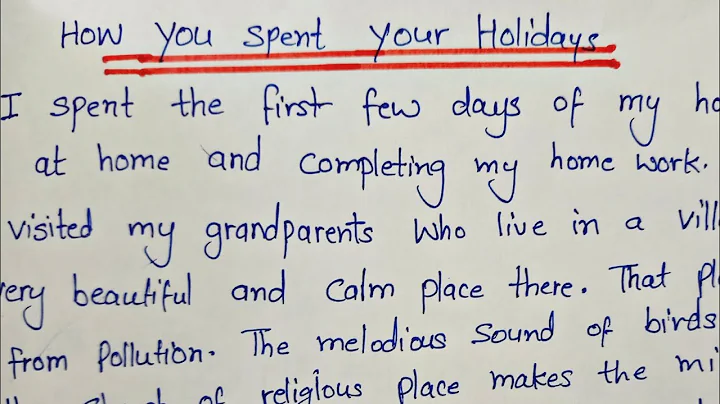 How You Spent Your Holidays
I spent the first few days of my ho
at home and completing my home work.
visited my grandparents who live in a vill
very beautiful and calm place there. That pl
from Pollution. The melodious Sound of birds
of religious place makes the mi